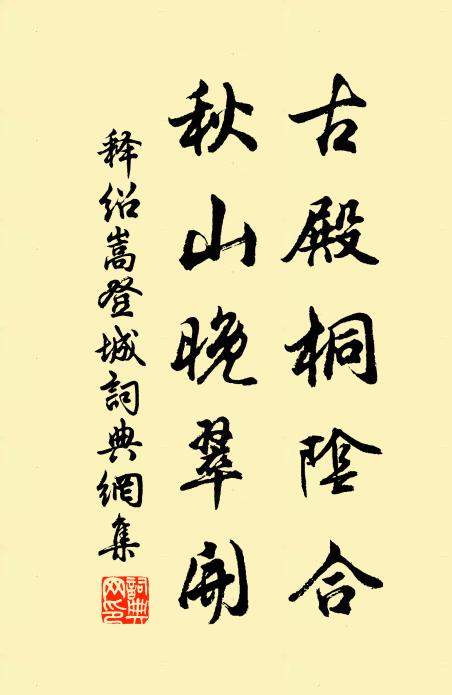 古殿桐陰合
秋山晚翠開
释绍嵩登城詞典網集